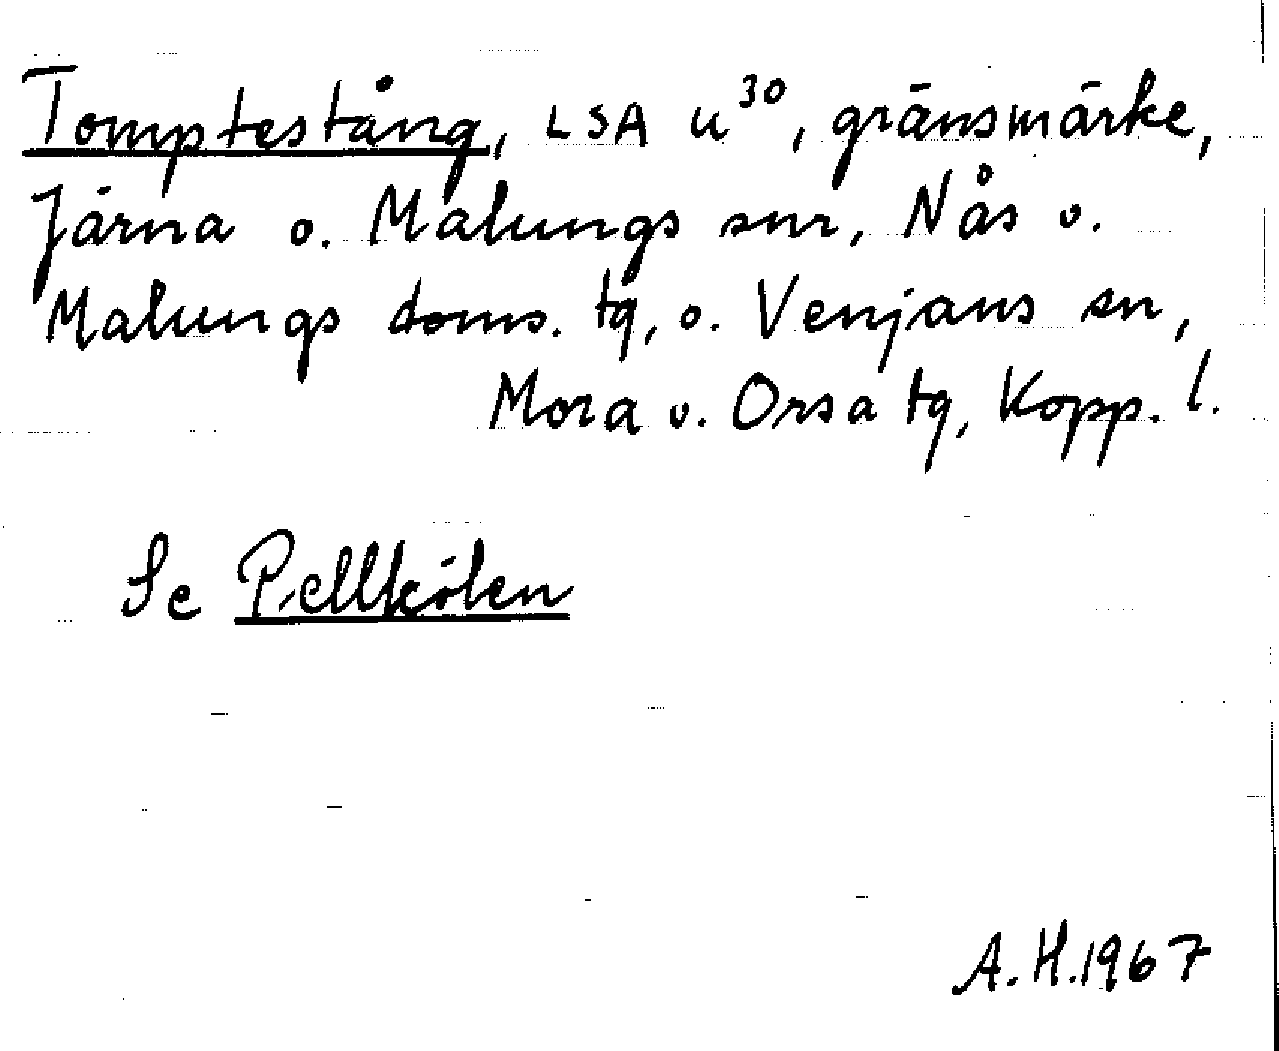 Tomptestång, LSA u³⁰, gränsmärke,
Järna o. Malungs snr, Nås o.
Malungs doms. tg, o. Venjans sn,
Mora o. Orsa tg, Kopp. l.
Se Pellkölen
A.H.1967